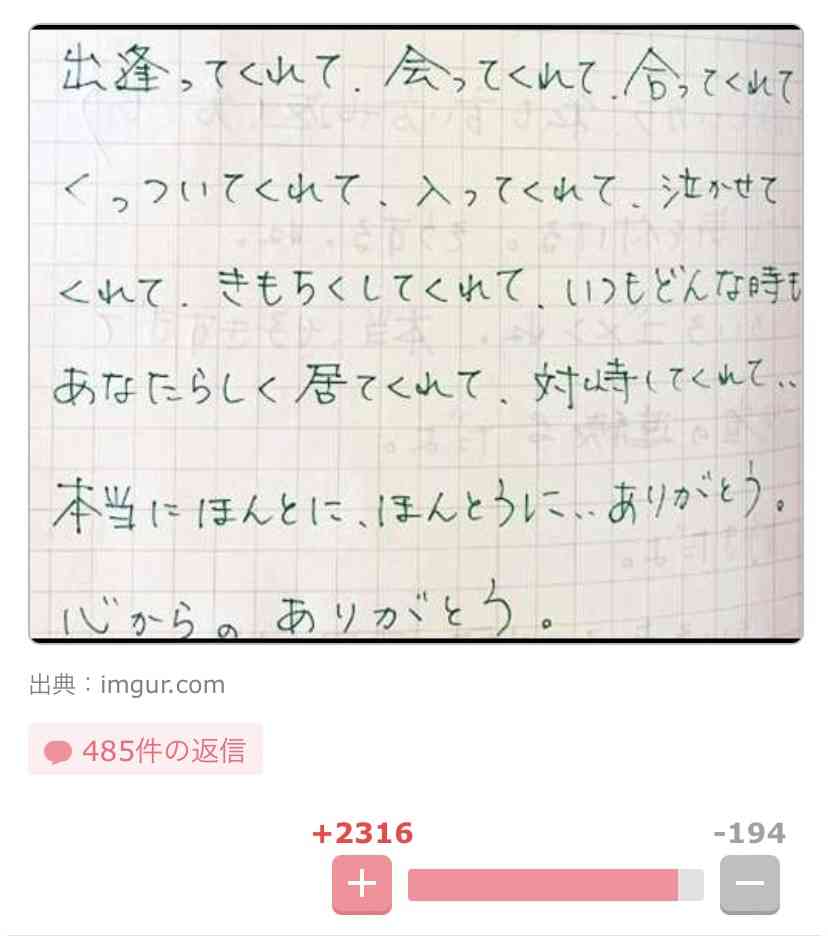 出逢ってくれて、会ってくれて、合ってくれて
くっついてくれて、入ってくれて、泣かせて
くれて、きもちくしてくれて、いつもどんな時も
あなたらしく居てくれて、対峙してくれて、、
本当にほんとに、ほんとうに、、ありがとう。
心からの ありがとう。
出典：imgur.com
485件の返信
+2316
-194